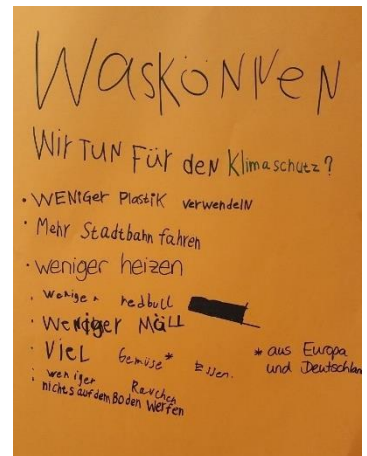 WasKÖNNeN
Wir TUN Für deN Klimaschutz?
• WENiGer Plastik verwendelN
• Mehr Stadtbahn fahren
• weniger heizen
• weniger redbull
• Weniger Müll
• Viel Gemüse* Essen.
* aus Europa
und Deutschlan
• weniger Rauchen
• nichts auf dem Boden Werfen